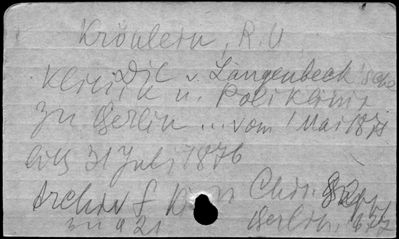 Krönlein, R.U.
Die v. Langenbeck'sche
Klinik u. Poliklinik
zu Berlin ... vom 1 Mai 187
bis 31 Juli 1876
Archiv f. Klin Chir.
Berlin, 1877